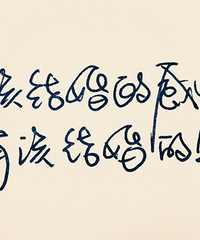 该结婚的
有该结婚的